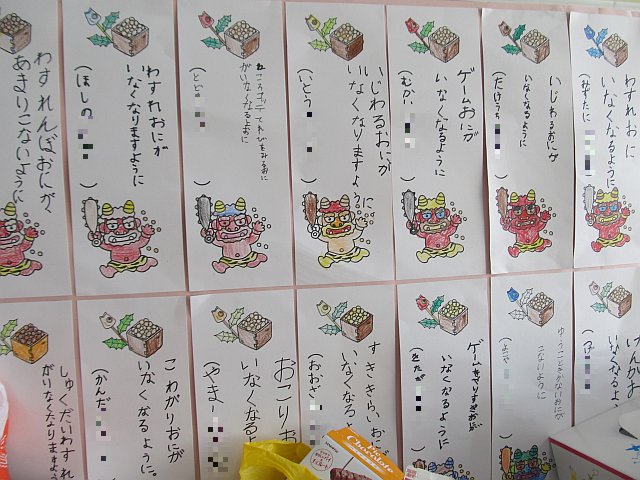 わすれおに
いなくなるように
(みずたに
いじわるおにが
いなくなるように
(たけうち
ゲームおにが
いなくなるように
(むかい
いじわるおにが
いなくなりますように
(いとう
ねころんでテレビをみるおに
がいなくなるように
わすれおにが
いなくなりますように
(ほしの
わすれんぼおにが、
あまりこないように
けんかお
いなくなる
ゆうことをきかないおにが
こないように
ゲームをやりすぎおにが
いなくなるように
(きたが
すききらいおに
いなくなる
(おおざ
おこりお
いなくなるよ
(やまー
こわがりおにが
いなくなるように。
(かんだ
しゅくだいわすれ
がいなくなりますよう
Chocolate